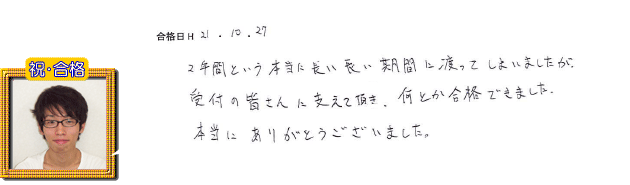 合格日 H 21 . 10 . 27
祝・合格
2年間という本当に長い長い期間に渡ってしまいましたが、
受付の皆さんに支えて頂き、何とか合格できました。
本当にありがとうございました。